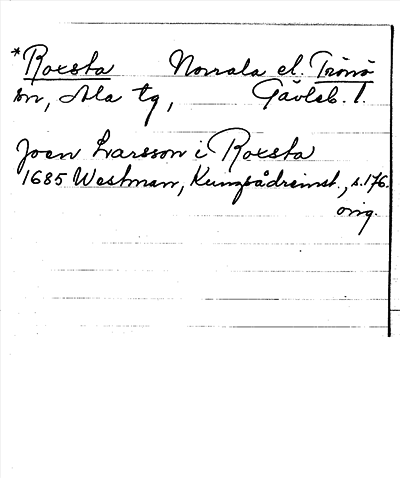 *Roxsta Norrala el. Trönö
sn, Ala tg, Gävleb. l.
Joen Larsson i Roxsta
1685 Westman, Kungsådreinst., s. 176.
orig.